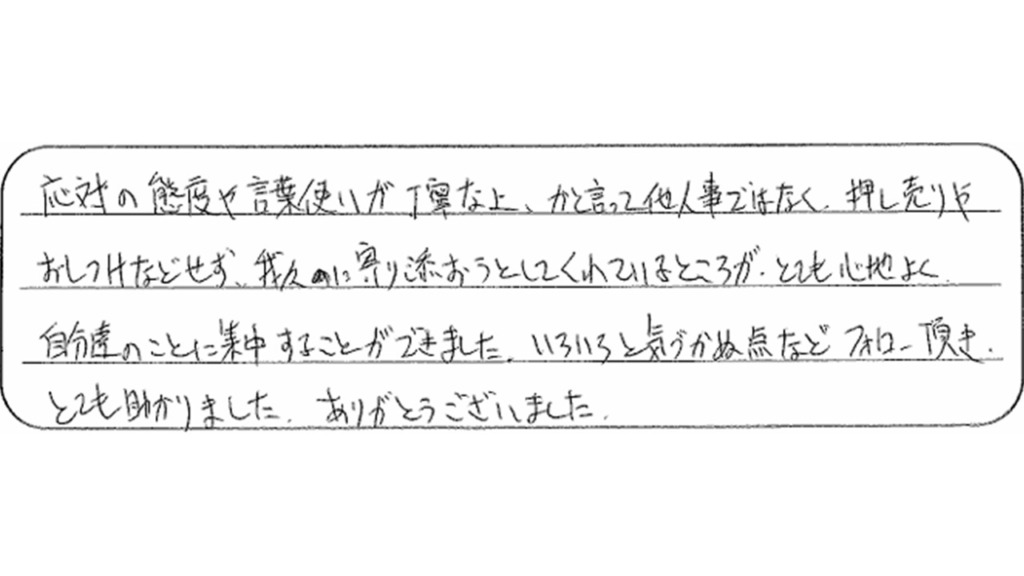 応対の態度や言葉使いが丁寧な上、かと言って他人事ではなく、押し売りや
おしつけなどせず、我々の心に寄り添おうとしてくれているところが、とても心地よく
自分達のことに集中することができました。いろいろと気づかぬ点などフォロー頂き、
とても助かりました。ありがとうございました。